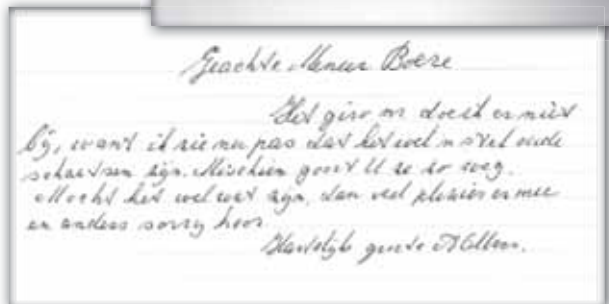 Geachte Meneer Boere
Het giro nr doe ik er niet
bij, want ik zie nu pas dat het wel n stel oude
schaatsen zijn. Misschien gooit U ze zo weg.
Mocht het wel wat zijn, dan veel plezier er mee
en anders sorry hoor.
Hartelijke groete